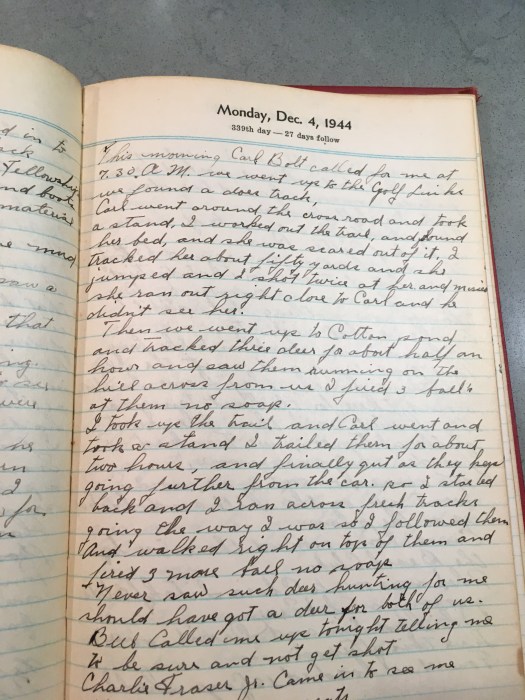 d in to
Fellowship
nd book
mind
saw a
that
were
he
I
for
Monday, Dec. 4, 1944
339th day — 27 days follow
This morning Carl Bolt called for me at
7.30 A.M. we went up to the Golf Links
we found a does track,
Carl went around the cross road and took
a stand, I worked out the trail, and found
her bed, and she was scared out of it, I
tracked her about fifty yards and she
jumped and I shot twice at her and missed
she ran out right close to Carl and he
didn't see her.
Then we went up to Cotton pond
and tracked three deer for about half an
hour and saw them running on the
hill across from us I fired 3 balls
at them no soap.
I took up the trail and Carl went and
took a stand I trailed them for about
two hours, and finally quit as they kep
going further from the car. so I started
back and I ran across fresh tracks
going the way I was so I followed them
And walked right on top of them and
fired 3 more ball no soap
Never saw such deer hunting for me
should have got a deer for both of us.
Beeb Called me up tonight telling me
to be sure and not get shot
Charlie Fraser Jr. Came in to see me